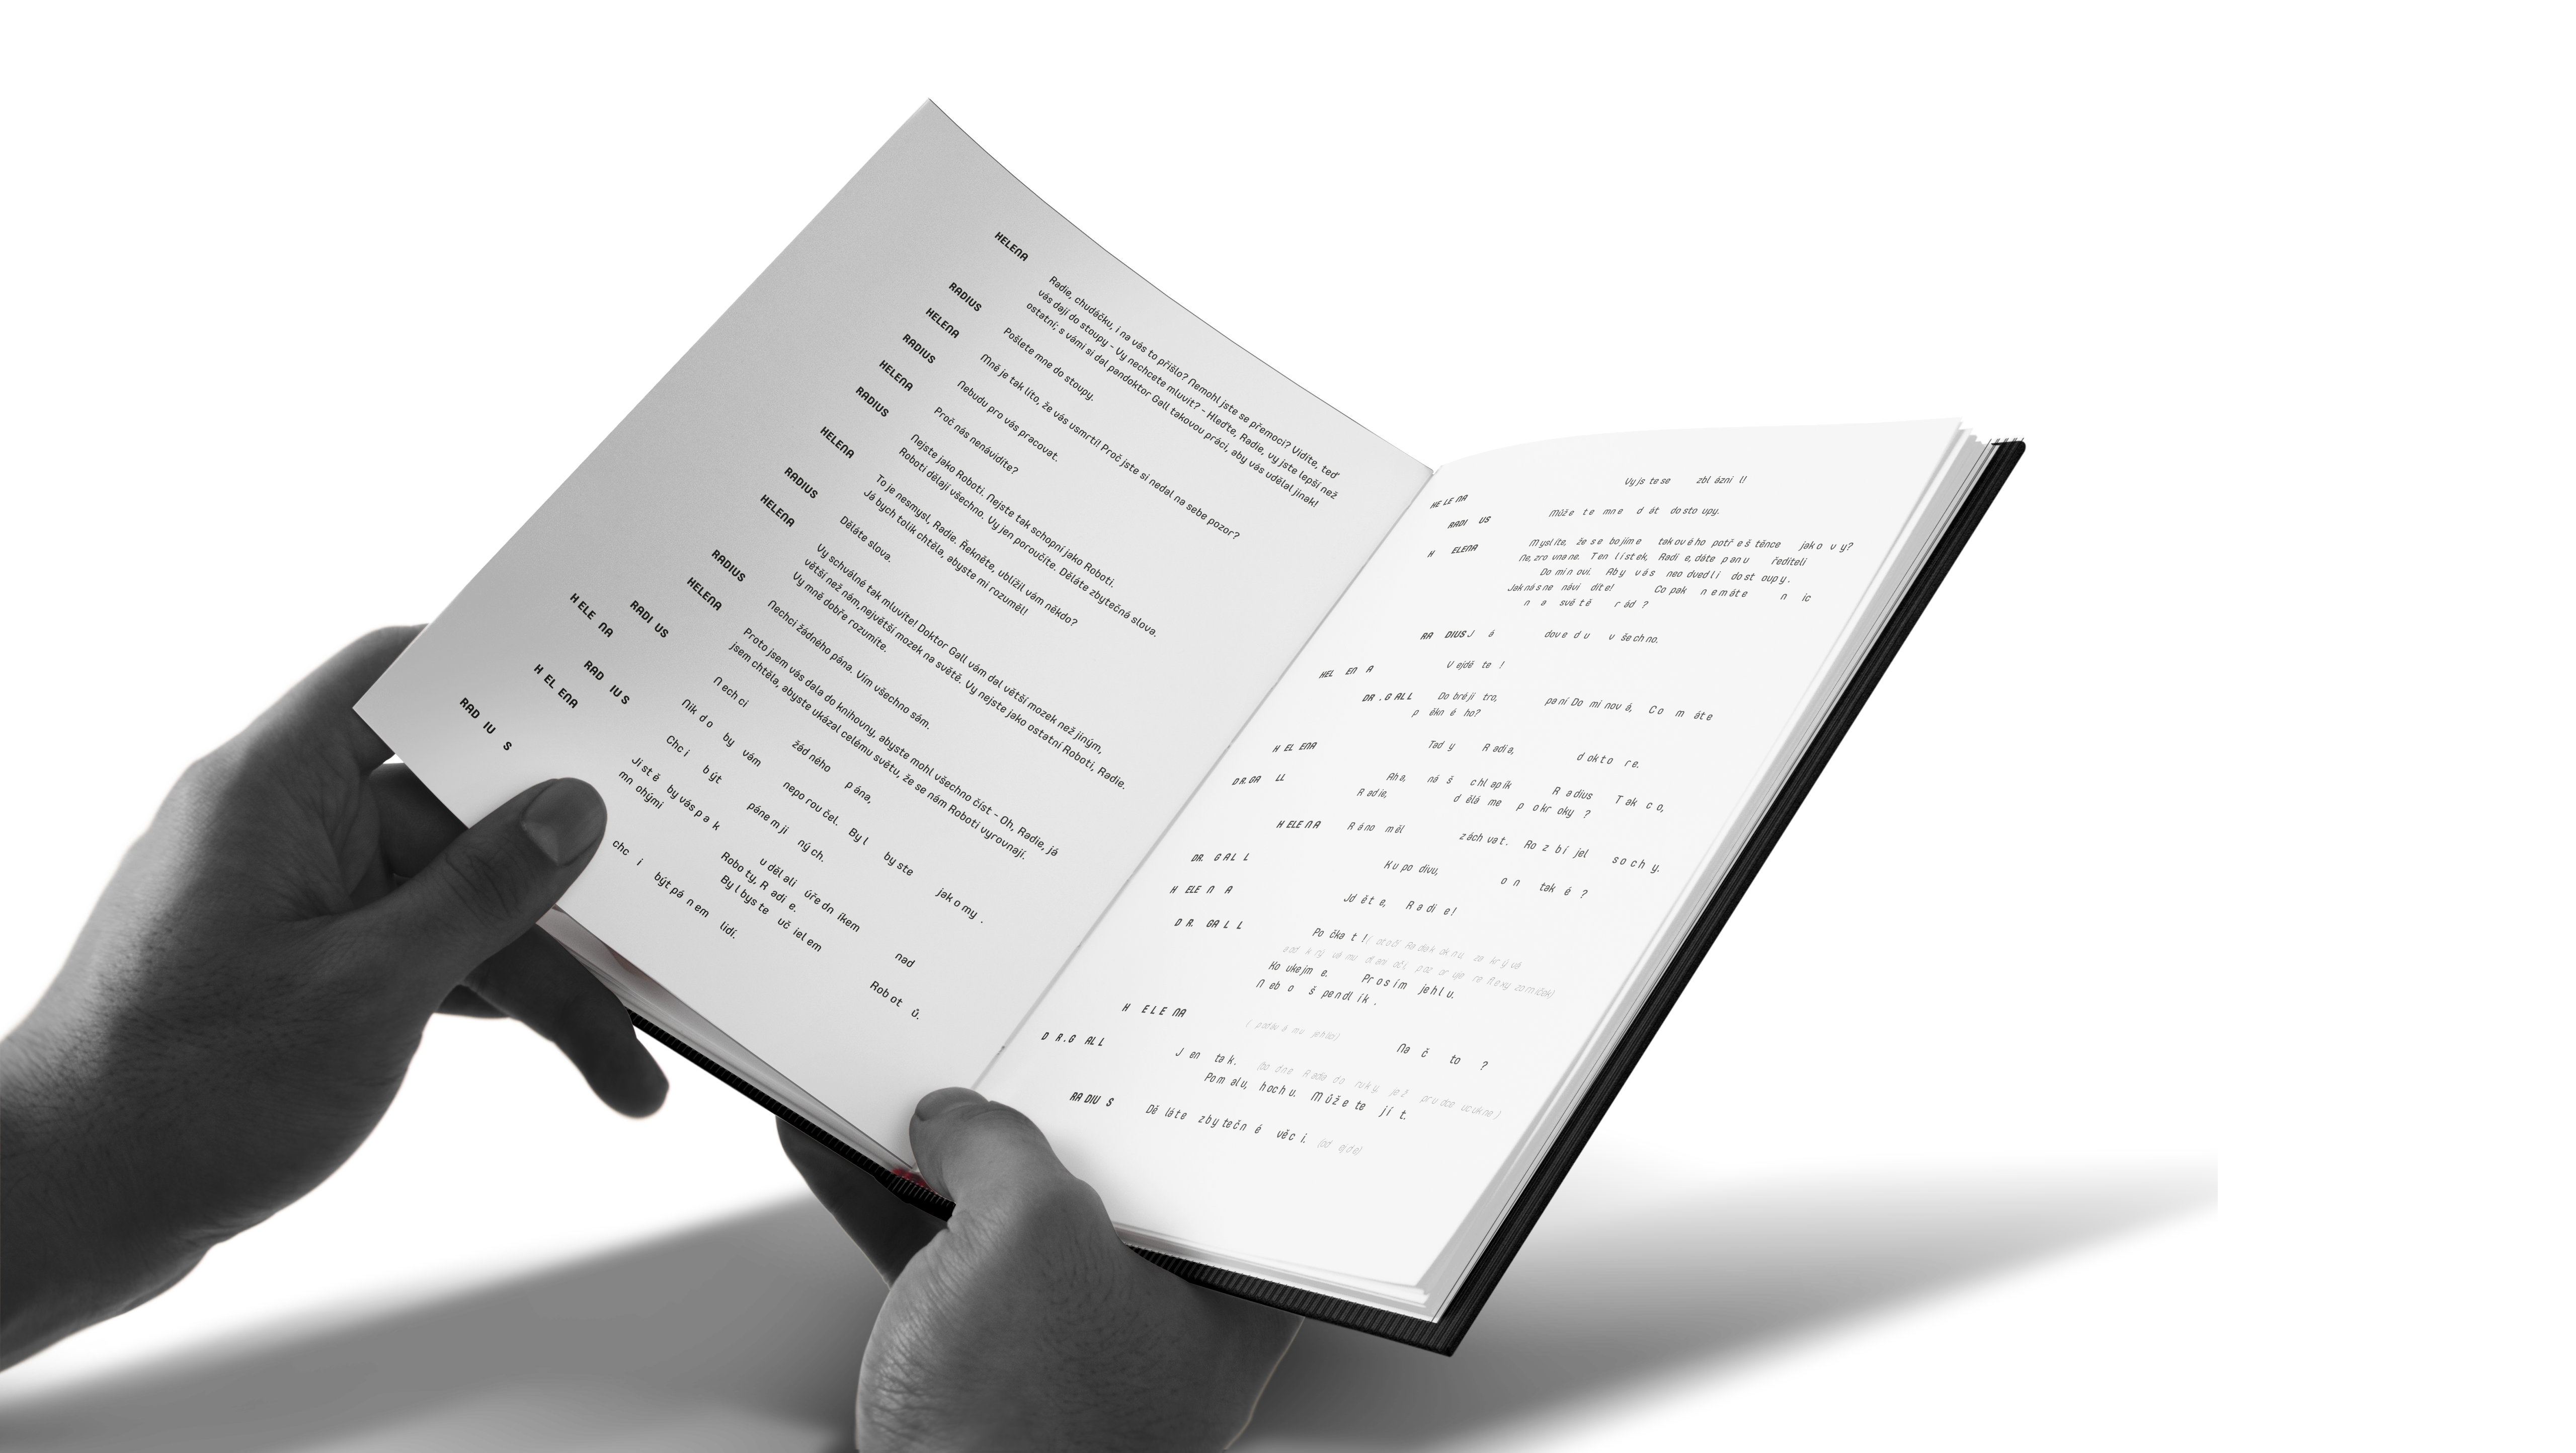 HELENA Radie, chudáčku, i na vás to přišlo? Nemohl jste se přemoci? Vidíte, teď
vás dají do stoupy - Vy nechcete mluvit? - Hleďte, Radie, vy jste lepší než
ostatní; s vámi si dal pandoktor Gall takovou práci, aby vás udělal jinak!
RADIUS Pošlete mne do stoupy.
HELENA Mně je tak líto, že vás usmrtí! Proč jste si nedal na sebe pozor?
RADIUS Nebudu pro vás pracovat.
HELENA Proč nás nenávidíte?
RADIUS Nejste jako Roboti. Nejste tak schopní jako Roboti.
Roboti dělají všechno. Vy jen poroučíte. Děláte zbytečná slova.
HELENA To je nesmysl, Radie. Řekněte, ublížil vám někdo?
Já bych tolik chtěla, abyste mi rozuměl!
RADIUS Děláte slova.
HELENA Vy schválně tak mluvíte! Doktor Gall vám dal větší mozek než jiným,
větší než nám,největší mozek na světě. Vy nejste jako ostatní Roboti, Radie.
Vy mně dobře rozumíte.
RADIUS Nechci žádného pána. Vím všechno sám.
HELENA Proto jsem vás dala do knihovny, abyste mohl všechno číst - Oh, Radie, já
jsem chtěla, abyste ukázal celému světu, že se nám Roboti vyrovnají.
RADI US N ech ci žád ného p ána,
H ELE NA Nik d o by vám nepo rou čel. By l by ste jak o my .
RAD IU S Chc i b ýt páne m ji ný ch.
H EL ENA Ji st ě by vás p a k u děl ali úře dn íkem nad
mn ohými Robo ty, R adi e. By l bys te uč iel em Rob ot ů.
RAD IU S chc i být pá n em lidí.
Vy js te se zbl ázni l!
HE LE NA
RADI US Můž e t e mn e d át do sto upy.
H ELENA M ysl íte, že s e bo jím e tak ov é ho potř e š těnce jak o v y?
Ne, zro vna ne. T en l í st ek, Radi e, dáte p an u řediteli
Do mi n ovi. Ab y v á s neo dved l i do st oup y .
Jak ná s ne návi díte! Co pak n e m á t e n ic
n a svě t ě r ád ?
RA DIUS J á dov e d u v še ch no.
HEL EN A V ejdě te !
DR . G ALL Do bré ji tro, pa ní Do mi nov á, C o m áte
p ěkn é ho?
H EL ENA Tad y R adi a, d okt o re.
D R. GA LL Ah a, ná š chl ap ík R adius T ak c o,
R adie, d ělá me p o kr oky ?
H ELE N A R á no měl zách vat. Ro z b í jel s o c h y.
DR. G AL L K u po divu, o n tak é ?
H ELE N A Jd ět e, R a di e!
D R. GA L L Po čka t !
Ko ukejm e. Pr o s í m jeh l u.
N eb o š pendl ík .
H E L E NA ( podáv á mu jehlici) Na č to ?
D R . G AL L J en ta k.
Pom alu, hoch u. M ůž e te j í t.
RA DIU S Dě láte z by teč n é věc i. (od ejde)